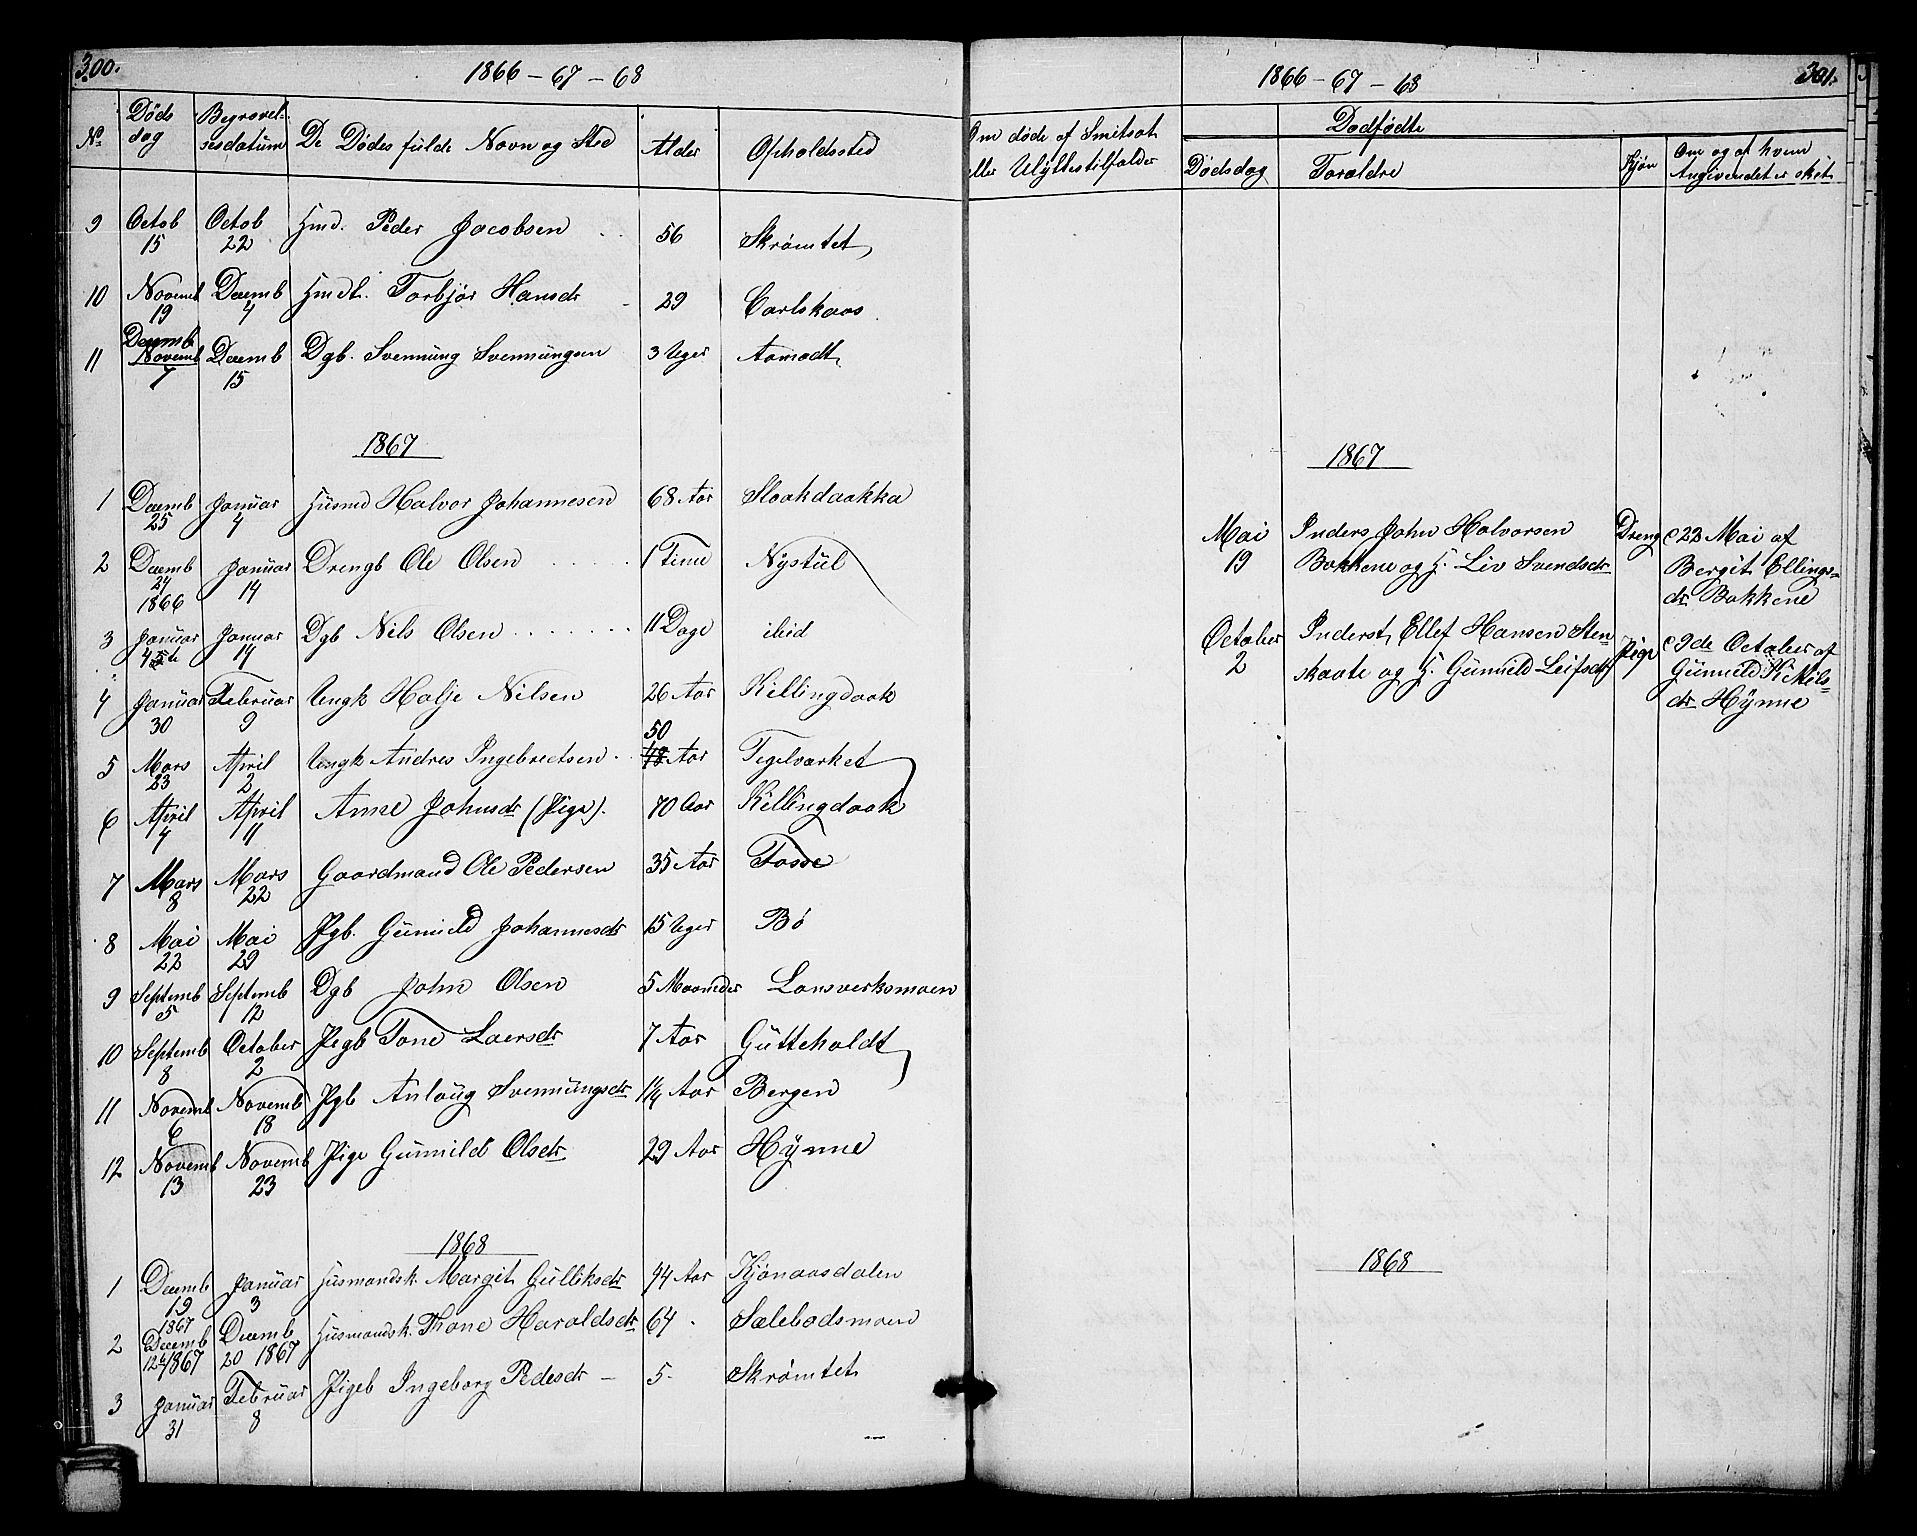 300.
1866-67-68
No Døds dag Begravelsesdatum De Dødes fulde Navn og Sted Alder Opholdssted
9 Octob 15 Octob 22 Hmd. Peder Jacobsen 56 Skrømtet
10 Novemb 19 Decemb 4 Hmdk. Torbjør Hansdr 29 Carlskaas
11 Decemb Novemb 7 Decemb 15 Dgb. Svennung Svennungsen 3 Uger Aamodt
1867
1 Decemb 25 Januar 4 Husmd Halvor Johannesen 68 Aar Slaakdaakka
2 Decemb 24 1866 Januar 14 Drengb Ole Olsen 1 Time Nystul
3 Januar 4de Januar 14 Dgb Nils Olsen 11 Dage ibid
4 Januar 30 Februar 9 Ungk Halje Nilsen 26 Aar Killingdaok
5 Mars 23 April 2 Ungk Andres Ingebretsen 50 48 Aar Tegelværket
6 April 4 April 11 Anne Johnsdr (Pige). 70 Aar Killingdaok
7 Mars 8 Mars 22 Gaardmand Ole Pedersen 35 Aar Fosse
8 Mai 22 Mai 29 Pgb. Gunnild Johannesdr 15 Uger Bø
9 Septemb 5 Septemb 12 Dgb John Olsen 5 Maaneder Lonsverksmoen
10 Septemb 8 October 2 Pegb Tone Laersdr 7 Aar Gutteholdt
11 Novemb 6 Novemb 18 Pgb Anlaug Svennungsdr 1¼ Aar Bergen
12 Novemb 13 Novemb 23 Pige Gunnild Olsdr 29 Aar Hynne
1868
1 Decemb 19 1867 Januar 3 Husmandsk. Margit Gulliksdr 74 Aar Kjønaasdalen
2 Decemb 12te 1867 Decemb 20 1867 Husmandsk. Thone Haraldsdr 64 Sælebodsmoen
3 Januar 31 Februar 8 Pigeb Ingeborg Pedesdr 5 Skrømtet
1866-67-68
301.
Om døde af Smitsot eller Ulykkestilfælder
Dødfødte
Dødsdag Forældre Kjøn Om og af hvem Angivendet er skét
1867
Mai 19 Inders. John Halvorsen Bakkene og H. Liv Svendsdr Dreng 23 Mai af Bergit Ellingsdr Bakkene
October 2 Inderst Ellef Hansen Stenskaate og H. Gunnild Leifsdr Pige 9de October af Gunnild K Nilsdr Hynne
1868